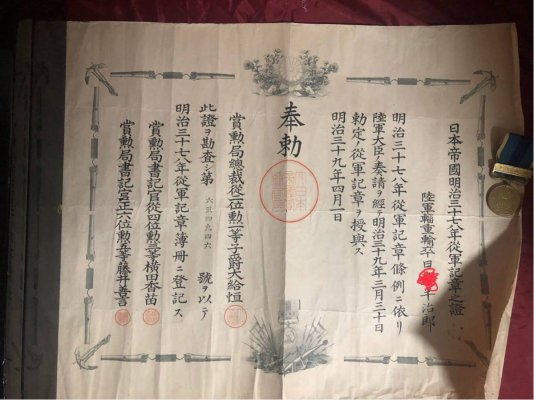 日本帝國明治三十七八年從軍記章之證
陸軍輜重輸卒
治郎
明治三十七八年從軍記章條例ニ依リ
陸軍大臣ノ奏請ヲ經テ明治三十九年三月三十日
勅定ノ從軍記章ヲ授與ス
明治三十九年四月一日
奉勅
賞勲局總裁從二位勲一等子爵大給恒
此證ヲ勘査シ第 六五四九四六 號ヲ以テ
明治三十七八年從軍記章簿冊ニ登記ス
賞勲局書記官從四位勲三等横田香苗
賞勲局書記官正六位勲五等藤井善言